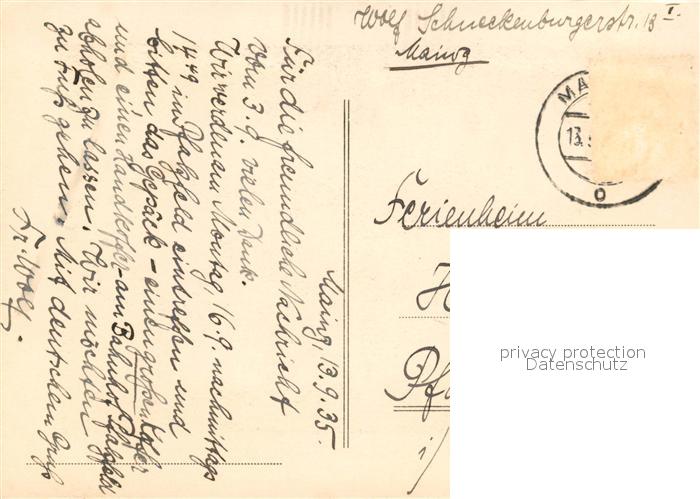 Wolf Schneckenburgerstr. 13 I.
Mainz
MA
13.
Ferienheim
H
Pf
i/
privacy protection
Datenschutz
Mainz, 13.9.35.
Für die freundliche Nachricht
vom 3.9. vielen Dank.
Wir werden am Montag, 16.9. nachmittags
14 49 in Pfalzfeld eintreffen und
bitten das Gepäck - einen großen Koffer
und einen Handkoffer - am Bahnhof Pfalzfeld
abholen zu lassen. Wir möchten
zu Fuß gehen. Mit deutschem Gruß
Fr. Wolf.